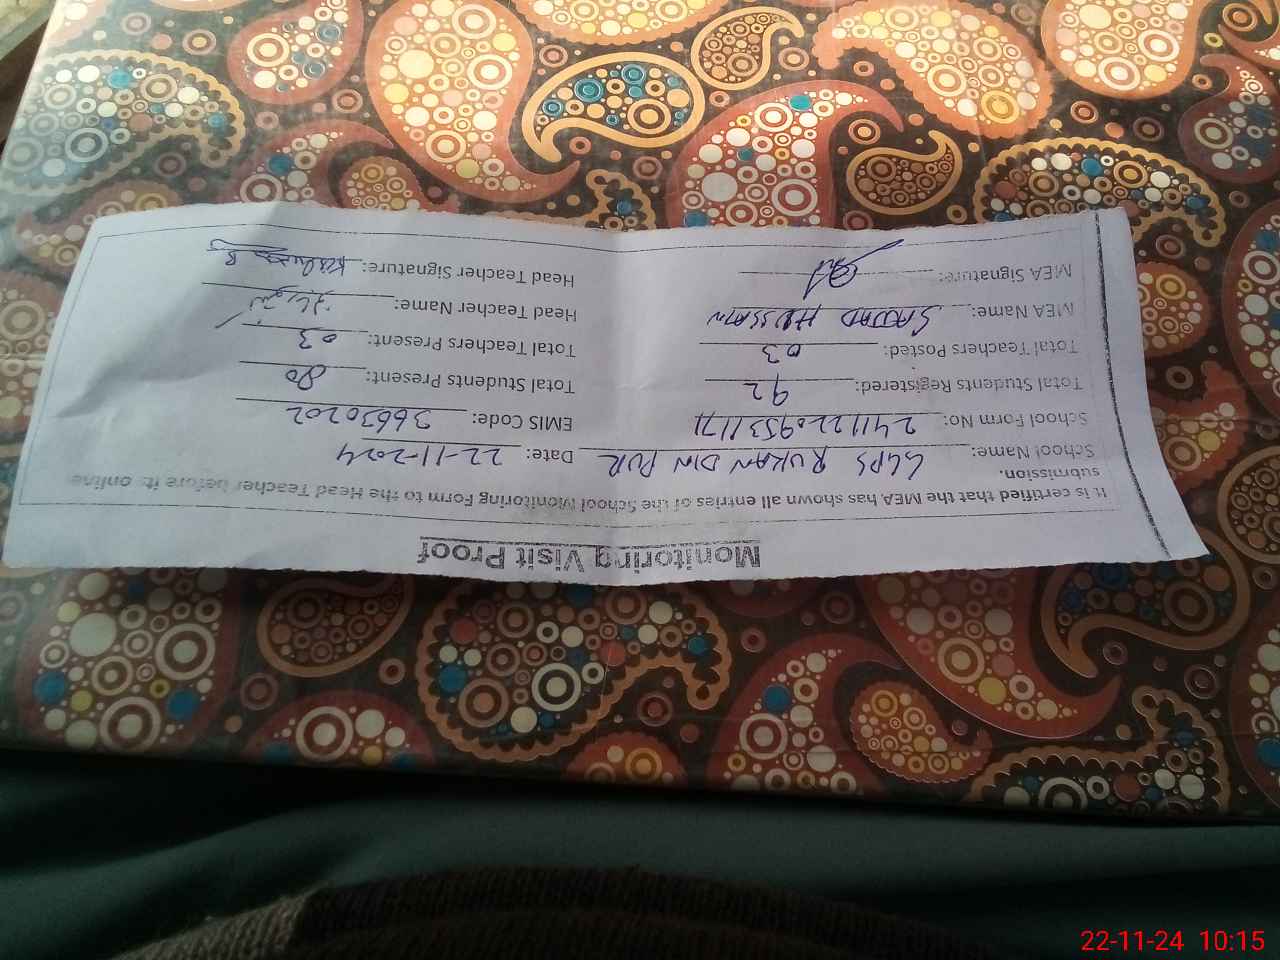 Monitoring Visit Proof
It is certified that the MEA has shown all entries of the School Monitoring Form to the Head Teacher before its online
submission.
School Name: GGPS RUKAN DIN PUR Date: 22-11-2024
School Form No: 2411220953171 EMIS Code: 36630202
Total Students Registered: 92 Total Students Present: 80
Total Teachers Posted: 03 Total Teachers Present: 03
MEA Name: SAJJAD HUSSAIN Head Teacher Name:
MEA Signature: Head Teacher Signature:
22-11-24 10:15